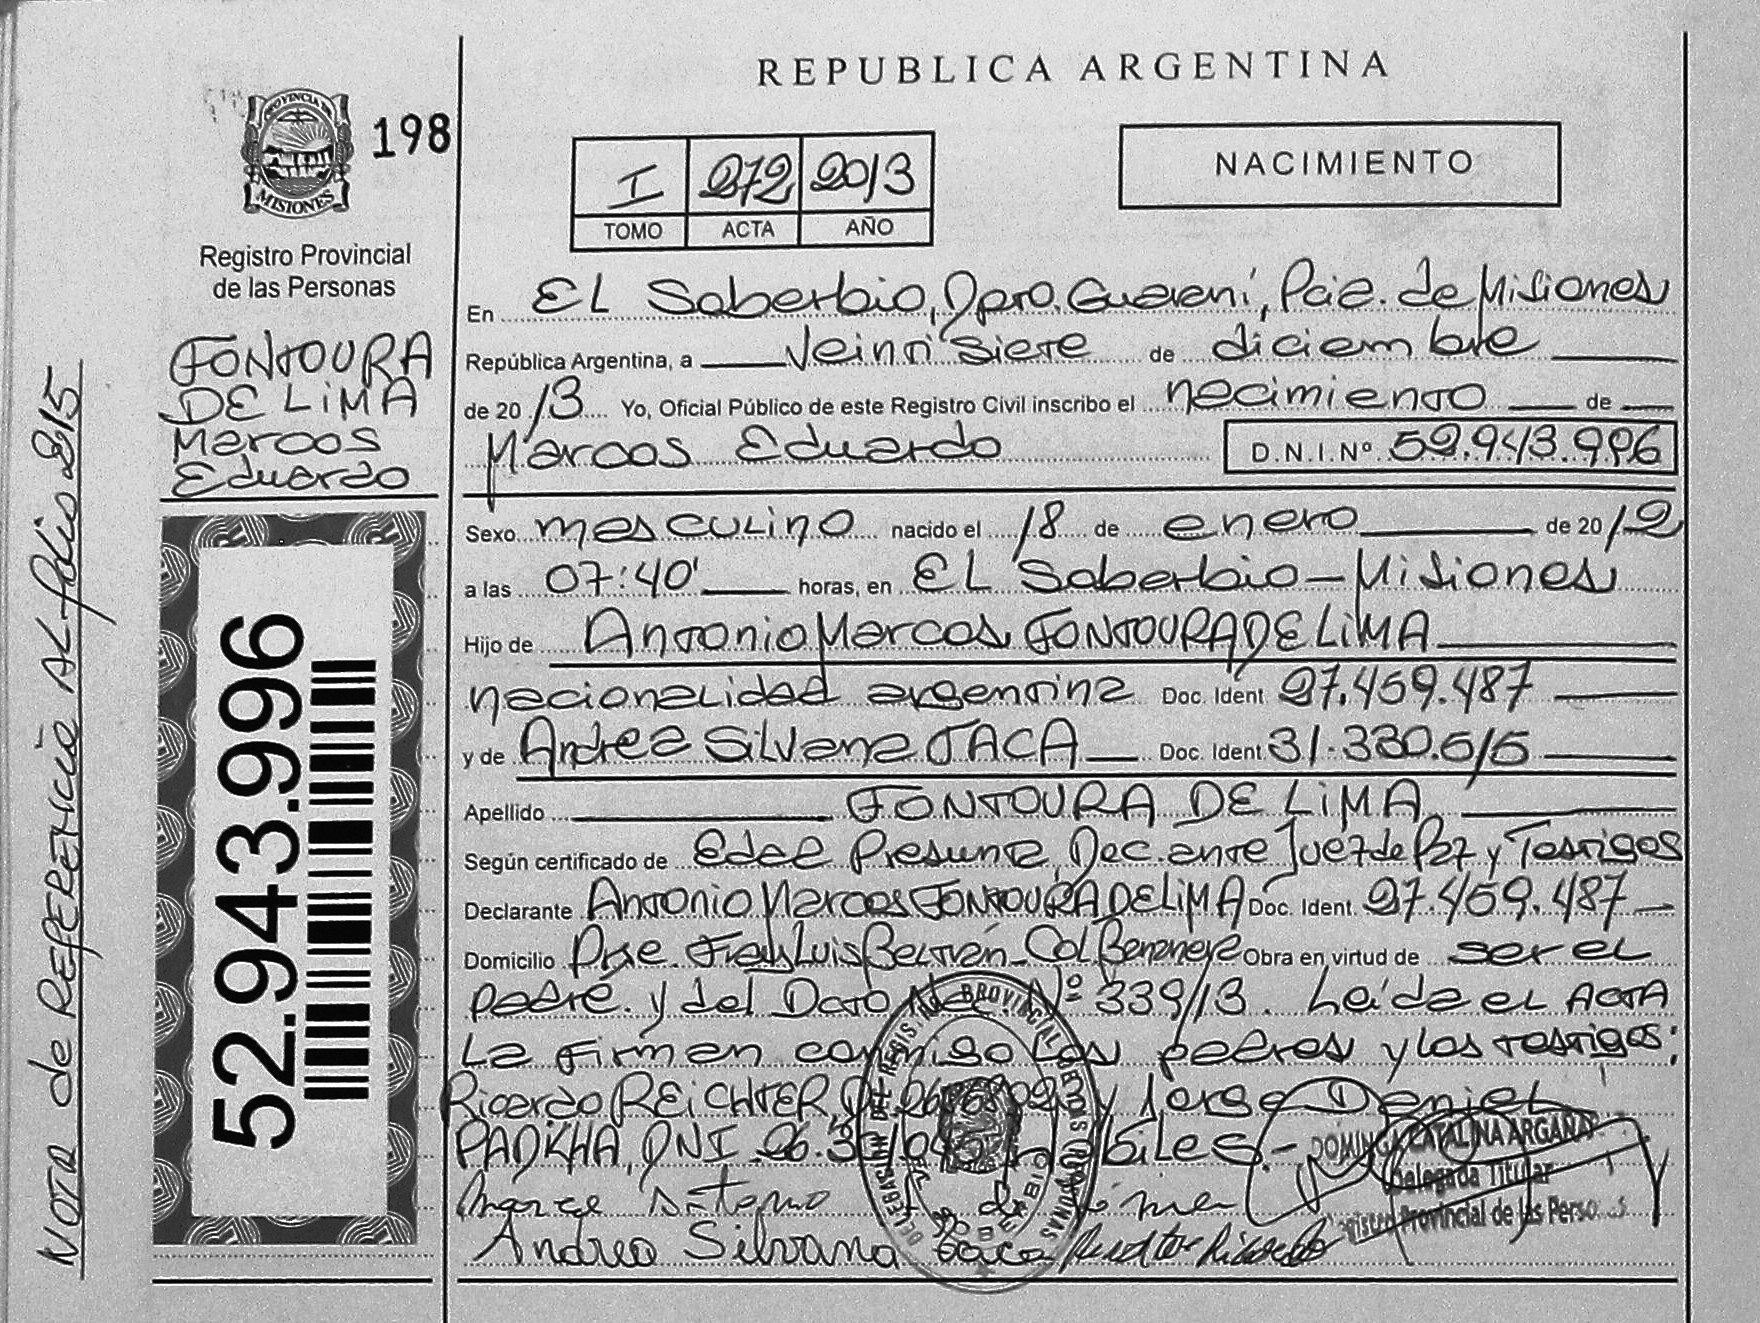 REPUBLICA ARGENTINA
PROVINCIA DE
MISIONES
198
Registro Provincial
de las Personas
I 272 2013
TOMO ACTA AÑO
NACIMIENTO
FONTOURA
DE LiMA
Marcos
Eduardo
NOTA de REFERENCIA AL folio 215
52.943.996
En EL Soberbio, Dpto. Guaraní, Pcia. de Misiones
República Argentina, a veintisiete de diciembre
de 2013 Yo, Oficial Público de este Registro Civil inscribo el nacimiento de
Marcos Eduardo D.N.I.Nº 52.943.996
Sexo masculino nacido el 18 de enero de 2012
a las 07:40' horas, en EL Soberbio - Misiones
Hijo de Antonio Marcos FONTOURA DE LiMA
nacionalidad argentina Doc. Ident 27.459.487
y de Andrea Silvana TACA Doc. Ident 31.330.515
Apellido FONTOURA DE LiMA
Según certificado de Edad Presunta, Dec. ante Juez de Paz y Testigos
Declarante Antonio Marcos FONTOURA DE LiMA Doc. Ident. 27.459.487
Domicilio Fray Luis Beltrán - Col. Obra en virtud de ser el
padre. y del Dato Nac. Nº 339/13. Leída el ACTA
La firman conmigo los padres y los testigos:
Ricardo REiCHTER, y Jorge Daniel
PADKHA, DNI 26.3
DOMINGA CATALINA ARGANA
Delegada Titular
Registro Provincial de las Personas
Andrea Silvana taca